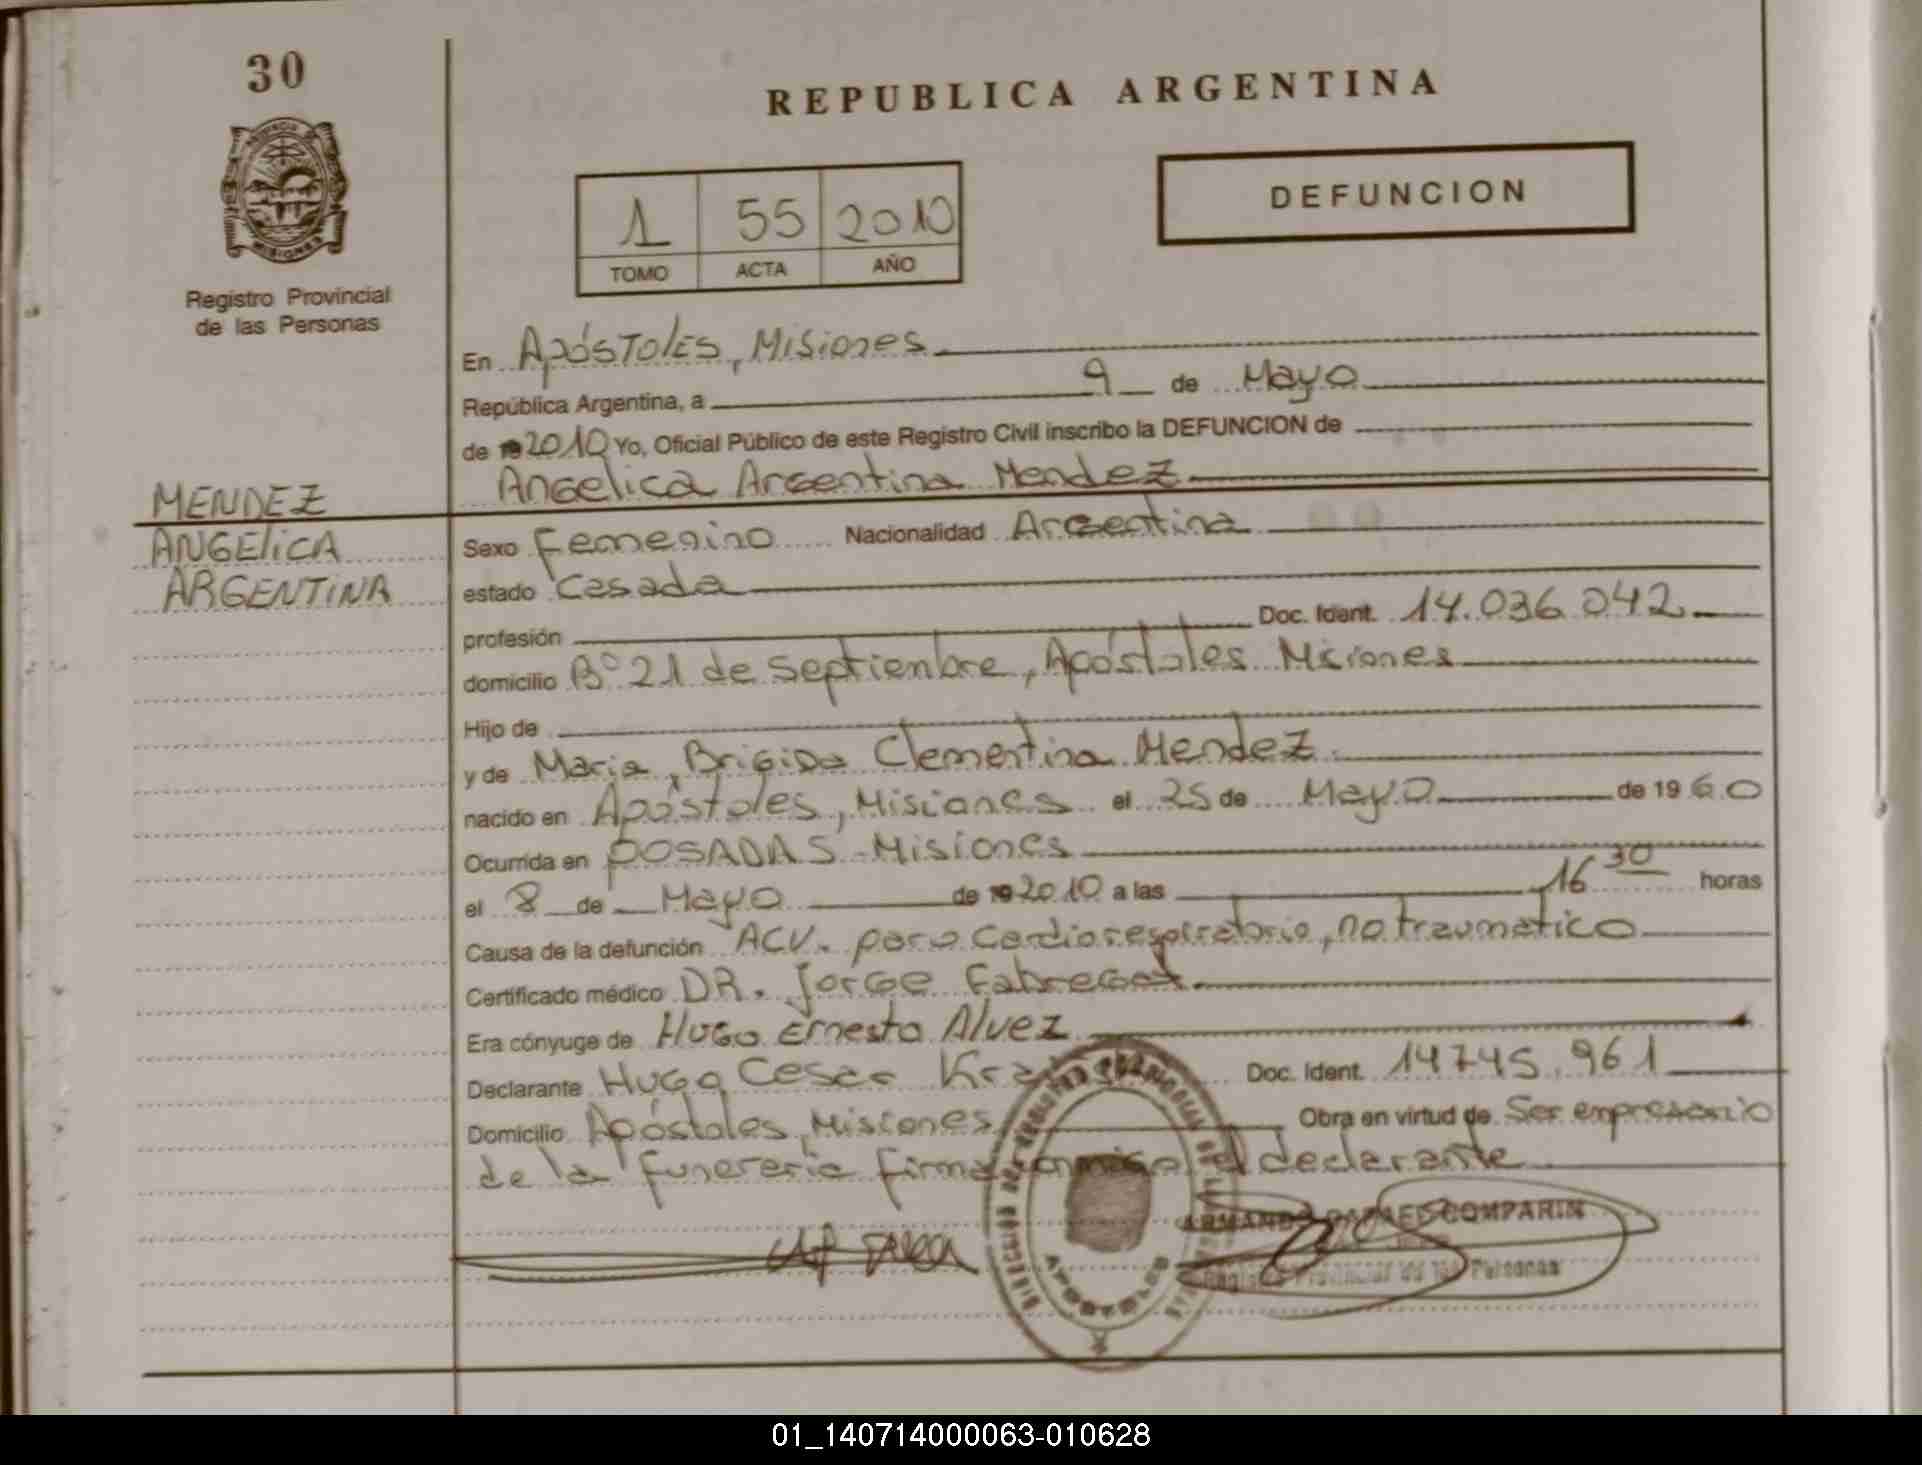 30
REPUBLICA ARGENTINA
DEFUNCION
1 55 2010
TOMO ACTA AÑO
Registro Provincial
de las Personas
En Apóstoles, Misiones
República Argentina, a 9 de Mayo
de 19 2010 Yo, Oficial Público de este Registro Civil inscribo la DEFUNCION de
Angelica Argentina Mendez
MENDEZ
ANGELICA
ARGENTINA
Sexo Femenino Nacionalidad Argentina
estado Casada
profesión Doc. Ident. 14.036.042
domicilio B° 21 de Septiembre, Apóstoles Misiones
Hijo de
y de Maria, Brigida Clementina Mendez
nacido en Apóstoles, Misiones el 25 de Mayo de 1960
Ocurrida en POSADAS - Misiones
el 8 de Mayo de 19 2010 a las 16 30 horas
Causa de la defunción ACV. paro Cardiorespiratorio, no traumático
Certificado médico DR. Jorge
Era cónyuge de Hugo Ernesto Alvez
Declarante Hugo Cesar Doc. Ident. 14745.961
Domicilio Apóstoles, Misiones Obra en virtud de Ser empresario
de la funeraria firma conmigo el declarante
ARMANDO RAFAEL COMPARIN
Registro Provincial de las Personas
APOSTOLES
01_140714000063-010628